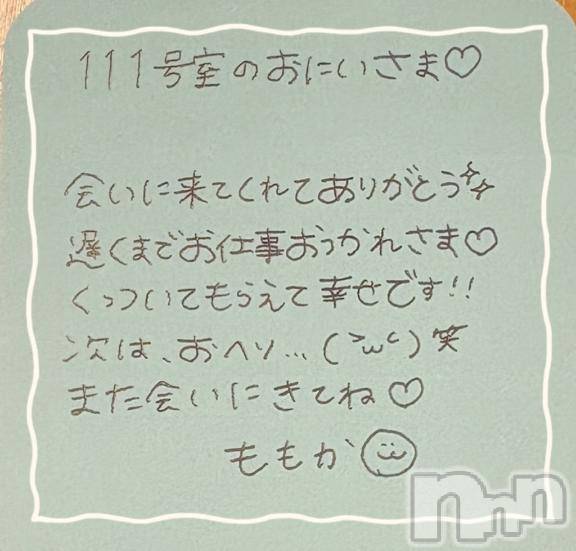 111号室のおにいさま♡
会いに来てくれてありがとう✨
遅くまでお仕事おつかれさま♡
くっついてもらえて幸せです!!
次は、おヘソ…(˃ω˂)笑
また会いにきてね♡
ももか
nnn